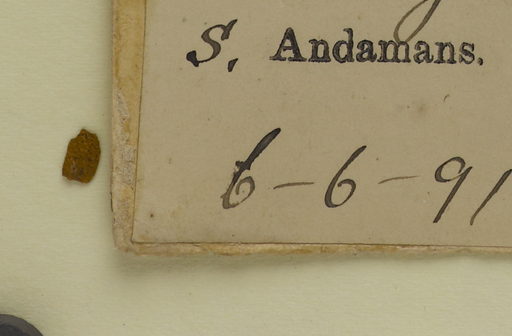 S. Andamans.
6-6-91